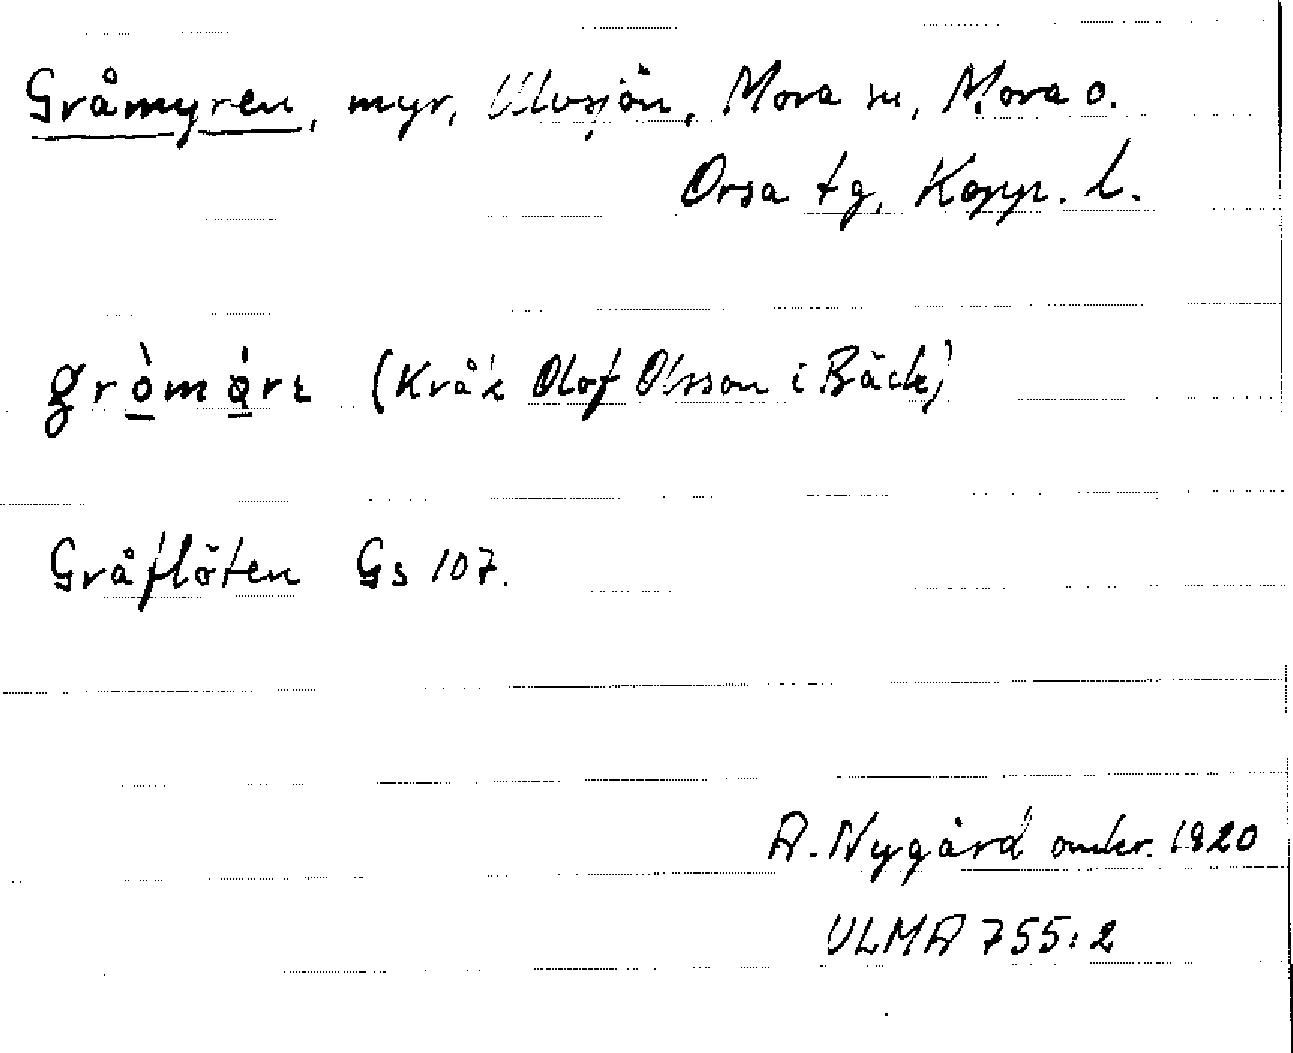 Gråmyren, myr, Ulvsjön, Mora sn, Mora o.
Orsa tg, Kopp. l.
gròmø̀rɩ (Kråk Olof Olsson i Bäck)
Gråflöten Gs 107.
A. Nygård omkr. 1920
ULMA 755:2